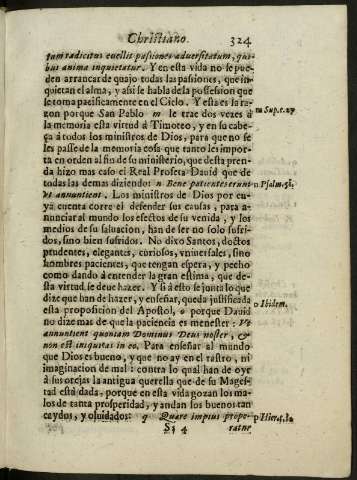 Christiano. 324
tum radicitus euellit pasiones aduersitatum, qui-
bus anima inquietatur. Y en esta vida no se pue-
den arrancar de quajo todas las pasiones, que in-
quietan el alma, y asi se habla de la possession que
se toma pacificamente en el Cielo. Y esta es la ra-
zon porque San Pablo m le trae dos vezes á
la memoria esta virtud á Timoteo, y en su cabe-
ça á todos los ministros de Dios, para que no se
les passe de la memoria cosa que tanto les impor-
ta en orden al fin de su ministerio, que desta pren-
da hizo mas caso el Real Profeta Dauid que de
todas las demas diziendo: n Bene patientes erunt
vt annuntient. Los ministros de Dios por cu-
ya cuenta corre el defender sus causas, para a-
nunciar al mundo los efectos de su venida, y los
medios de su saluacion, han de ser no solo sufri-
dos, sino bien sufridos. No dixo Santos, doctos
prudentes, elegantes, curiosos, vniuersales, sino
hombres pacientes, que tengan espera, y pecho
como dando á entender la gran estima, que de-
sta virtud se deue hazer. Y si á esto se junta lo que
dize que han de hazer, y enseñar, queda justificada
esta proposicion del Apostol, o porque Dauid
no dize mas de que la paciencia es menester: Vt
annuntient quoniam Dominus Deus noster, &
non est iniquitas in eo. Para enseñar al mundo
que Dios es bueno, y que no ay en el rastro, ni
imaginacion de mal: contra lo qual han de oyr
á sus orejas la antigua querella que de su Mages-
tad está dada, porque en esta vida gozan los ma-
los de tanta prosperidad, y andan los buenos tan
caydos, y oluidados: q Quare impius prope-
Ss 4 ratur
m Sup. c. 27
n Psalm. 91.
o Ibidem.
p Hier. 12